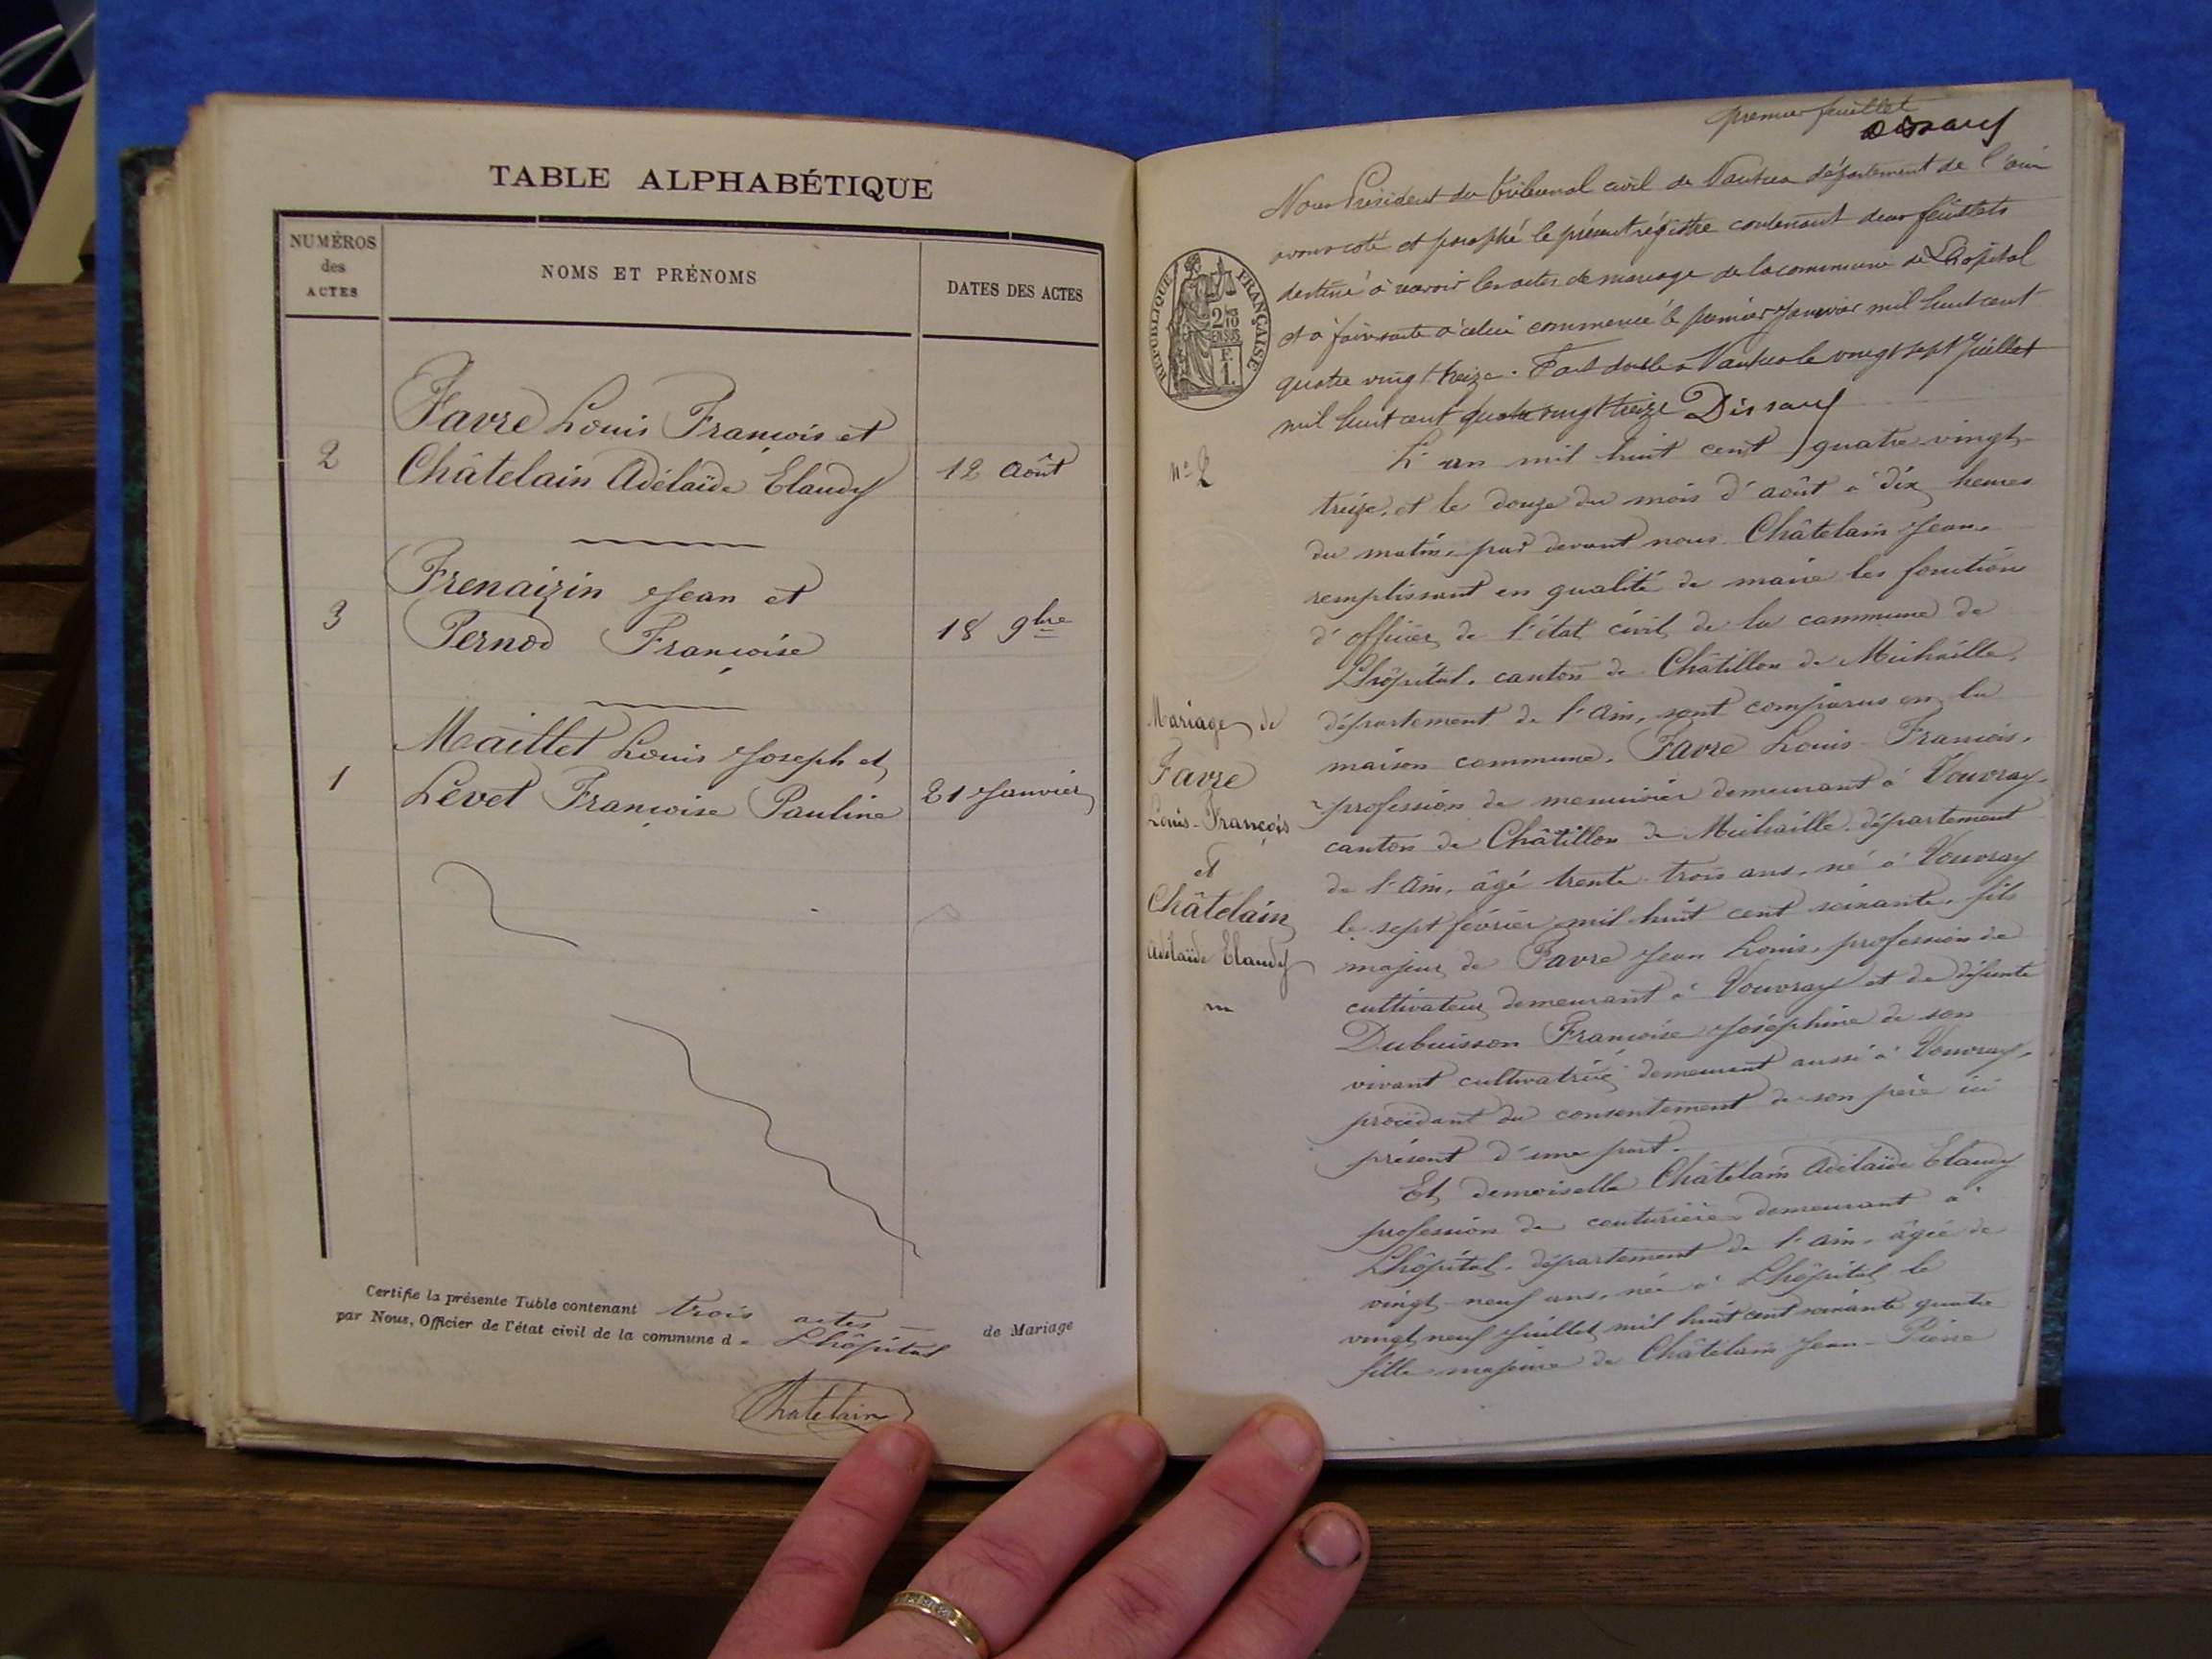 TABLE ALPHABÉTIQUE
NUMÉROS
des
ACTES
NOMS ET PRÉNOMS
DATES DES ACTES
2
Favre Louis François et
Châtelain Adélaïde Elaudy
12 Août
3
Frenaizin Jean et
Pernod Françoise
18 9bre
1
Maillet Louis Joseph et
Levet Françoise Pauline
21 Janvier
Certifie la présente Table contenant trois actes de Mariage
par Nous, Officier de l'état civil de la commune d. Lhôpital
Chatelain
premier feuillet
Dissard
Nous Président du tribunal civil de Nantua département de l'ain
avons coté et paraphé le présent régistre contenant deux feuillets
destiné à les actes de mariage de la commune de Lhôpital
et à faire suite à celui commencé le premier Janvier mil huit cent
quatre vingt treize. Fait double à Nantua le vingt sept Juillet
mil huit cent quatre vingt treize Dissard
RÉPUBLIQUE FRANÇAISE
2/10
EN SUS
F.
1.
No 2
L'an mil huit cent quatre vingt-
treize, et le douze du mois d'août à dix heures
du matin, par devant nous Châtelain Jean,
remplissant en qualité de maire les fonctions
d'officier de l'état civil de la commune de
Lhôpital, canton de Châtillon de Michaille,
département de l'Ain, sont comparus en la
maison commune, Favre Louis-François,
profession de menuisier demeurant à Vouvray,
canton de Châtillon de Michaille, département
de l'Ain, âgé trente trois ans, né à Vouvray
le sept février mil huit cent soixante, fils
majeur de Favre Jean Louis, profession de
cultivateur demeurant à Vouvray et de défunte
Dubuisson Françoise Joséphine de son
vivant cultivatrice demeurant aussi à Vouvray,
procédant du consentement de son père ici
présent d'une part.
Et demoiselle Châtelain Adélaïde Elaudy
profession de couturière demeurant à
Lhôpital, département de l'Ain, âgée de
vingt-neuf ans, née à Lhôpital le
vingt neuf Juillet mil huit cent soixante quatre
fille majeure de Châtelain Jean-Pierre
Mariage de
Favre
Louis-François
et
Châtelain
Adélaïde Elaudy